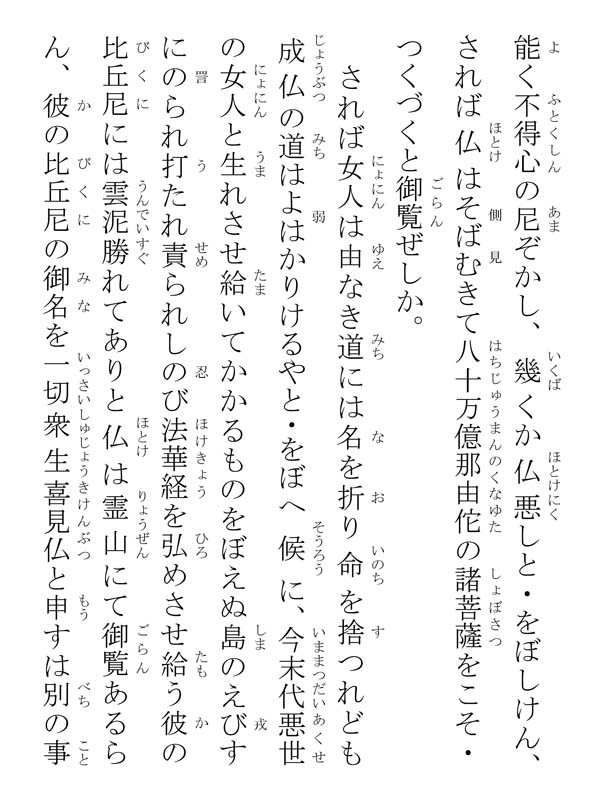 能く不得心の尼ぞかし、幾くか仏悪しと・をぼしけん、
されば仏はそばむきて八十万億那由佗の諸菩薩をこそ・
つくづくと御覧ぜしか。
されば女人は由なき道には名を折り命を捨つれども
成仏の道はよはかりけるやと・をぼへ候に、今末代悪世
の女人と生れさせ給いてかかるものをぼえぬ島のえびす
にのられ打たれ責られしのび法華経を弘めさせ給う彼の
比丘尼には雲泥勝れてありと仏は霊山にて御覧あるら
ん、彼の比丘尼の御名を一切衆生喜見仏と申すは別の事